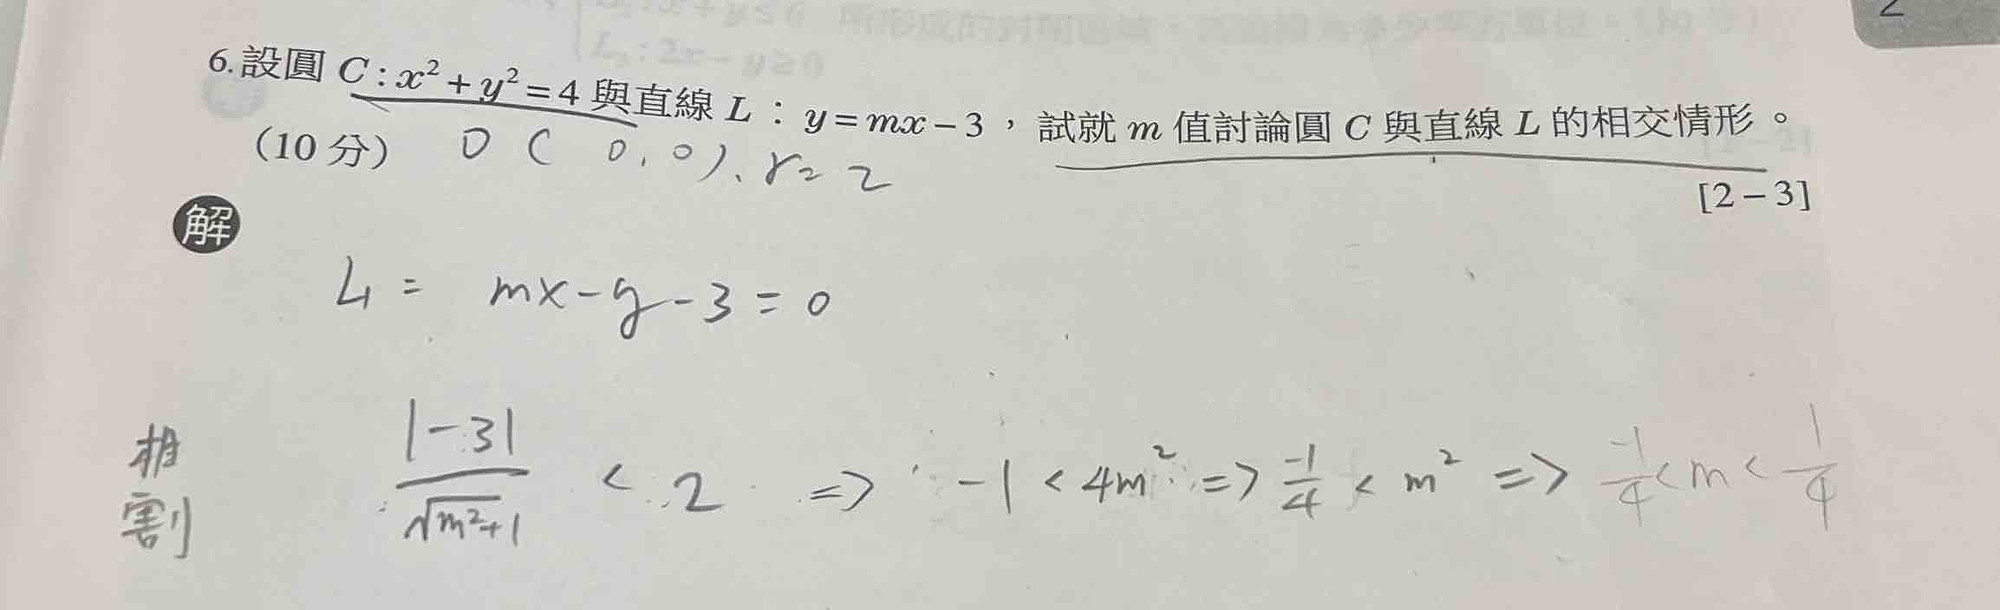 6.設圓 C:x²+y²=4 與直線 L：y=mx-3，試就 m 值討論圓 C 與直線 L 的相交情形。
（10 分） O ( 0, 0 )、r=2
[2-3]
解
L: mx-y-3=0
相割 |-3|/√(m²+1) < 2 => -1 < 4m² => -1/4 < m² => -1/4 < m < 1/4